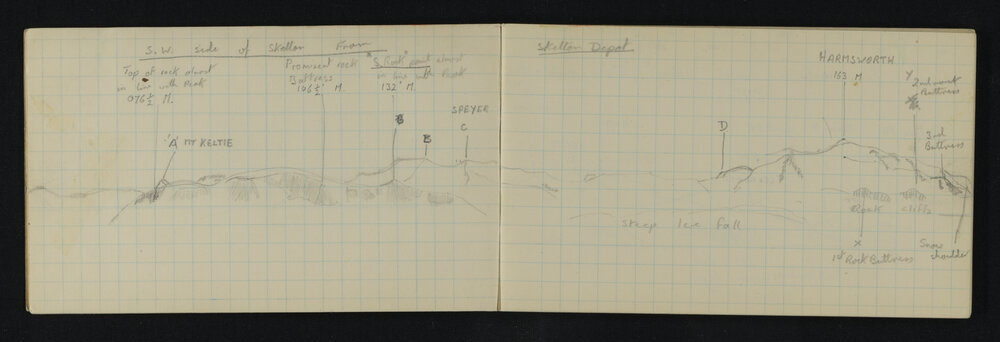 S.W. side of Skelton From
Skelton Depot
Top of rock almost
in line with Peak
076½ M.
Prominent rock
Buttress
106½° M.
"S. Rock" point almost
in line with Peak
132° M.
SPEYER
C
B
B
'A' MT KELTIE
HARMSWORTH
163 M
Y
2nd most
Buttress
3rd
Buttress
D
Rock Cliffs
Steep Ice Fall
X
1st Rock Buttress
Snow
shoulder